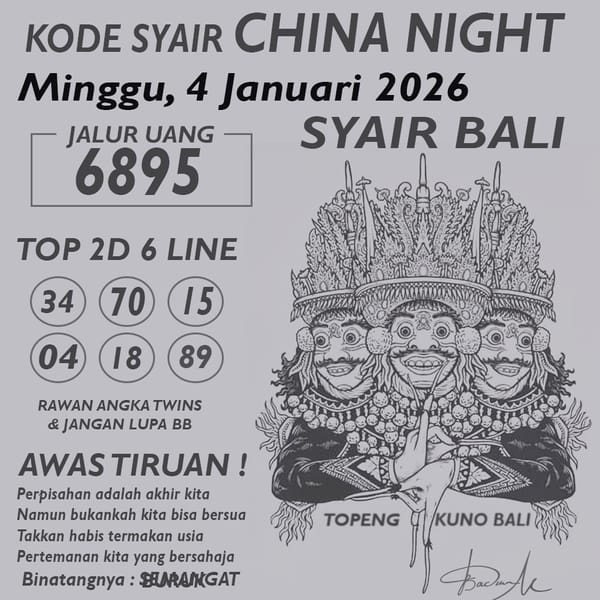 KODE SYAIR CHINA NIGHT
Minggu, 4 Januari 2026
SYAIR BALI
JALUR UANG
6895
TOP 2D 6 LINE
34 70 15
04 18 89
RAWAN ANGKA TWINS
& JANGAN LUPA BB
AWAS TIRUAN !
Perpisahan adalah akhir kita
Namun bukankah kita bisa bersua
Takkan habis termakan usia
Pertemanan kita yang bersahaja
Binatangnya : SEMANGAT
TOPENG KUNO BALI